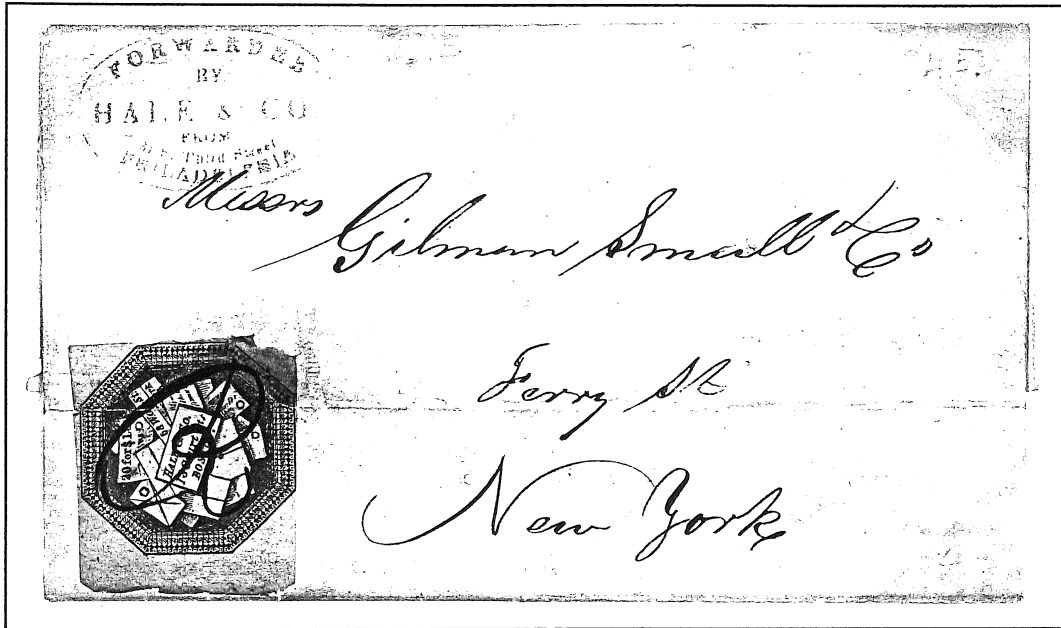 FORWARDED
BY
HALE & CO
FROM
Third Street
PHILADELPHIA
Messrs
Gilman Small & Co
Ferry St
New York
20 for $1.
HALE & Co
BOS